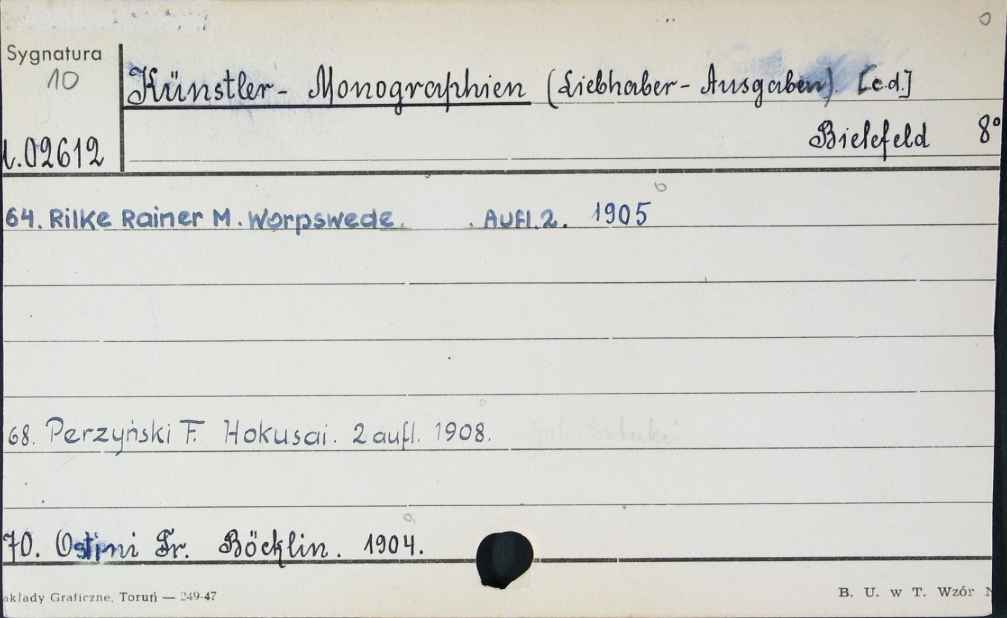 Sygnatura
10
Künstler - Monographien (Liebhaber - Ausgaben). [c.d.]
Bielefeld 8°
02612
64. Rilke Rainer M. Worpswede. . Aufl. 2. 1905
68. Perzyński F. Hokusai. 2 aufl. 1908.
70. Ostini Fr. Böcklin. 1904.
akłady Graficzne, Toruń — 249-47
B. U. w T. Wzór